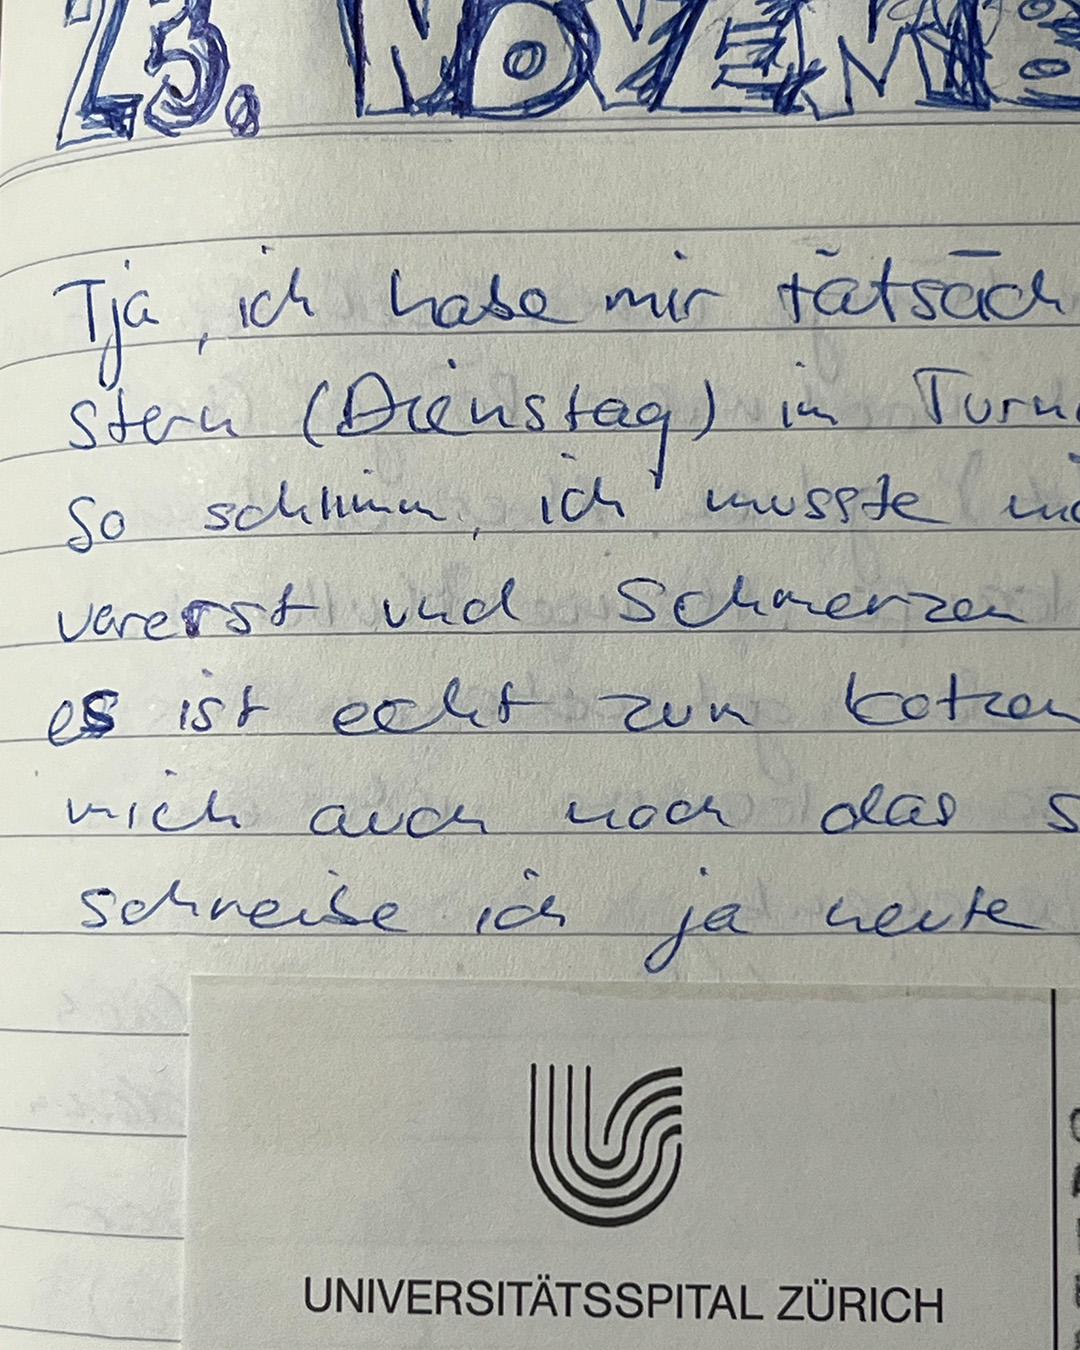 23. NOVEMB
Tja, ich habe mir tatsäch
stern (Dienstag) im Turn
so schlimm, ich musste
vorerst und Schmerzen
es ist echt zum kotzen
mich auch noch das s
schreibe ich ja heute
UNIVERSITÄTSSPITAL ZÜRICH